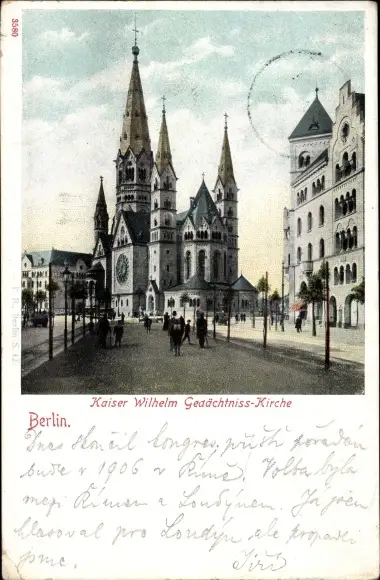 3580
Kaiser Wilhelm Gedächtniss-Kirche
Berlin.
Dnes skončil kongres, příští pořádán
bude v 1906 v Římě. Volba byla
mezi Římem a Londýnem. Ja jsem
hlasoval pro Londýn ale propadli
jsme. Jiří